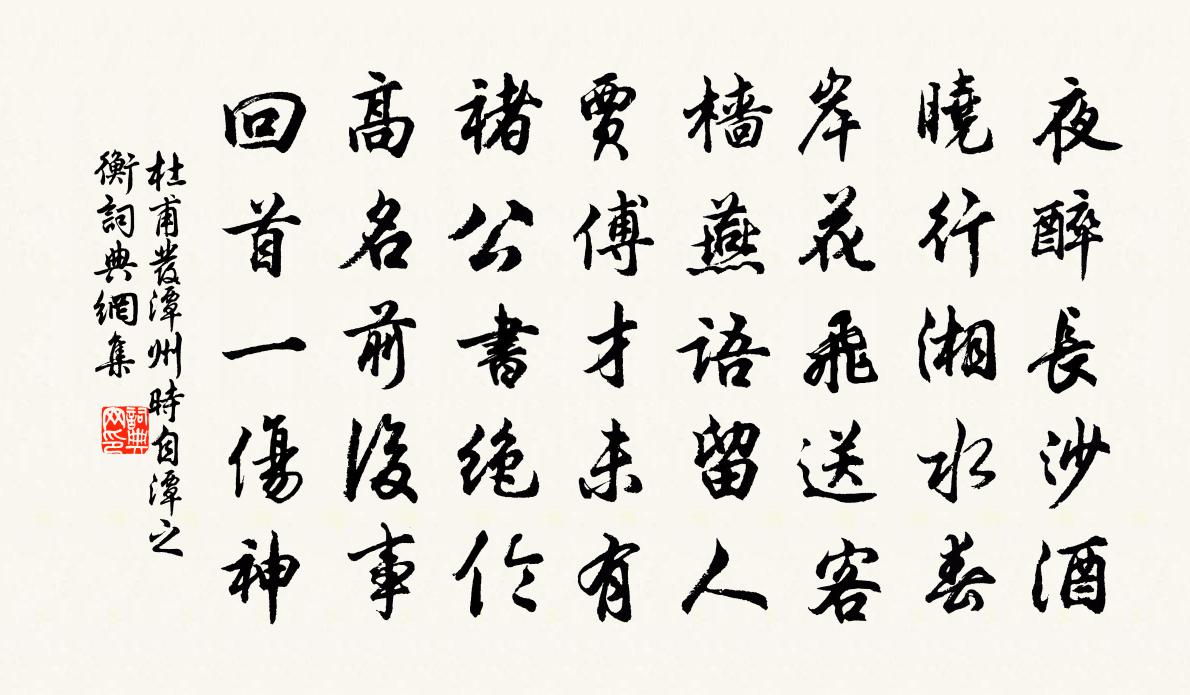 夜醉長沙酒
曉行湘水春
岸花飛送客
檣燕語留人
賈傅才未有
褚公書絕倫
高名前後事
回首一傷神
杜甫發潭州時自潭之
衡詞典網集
詞典網印